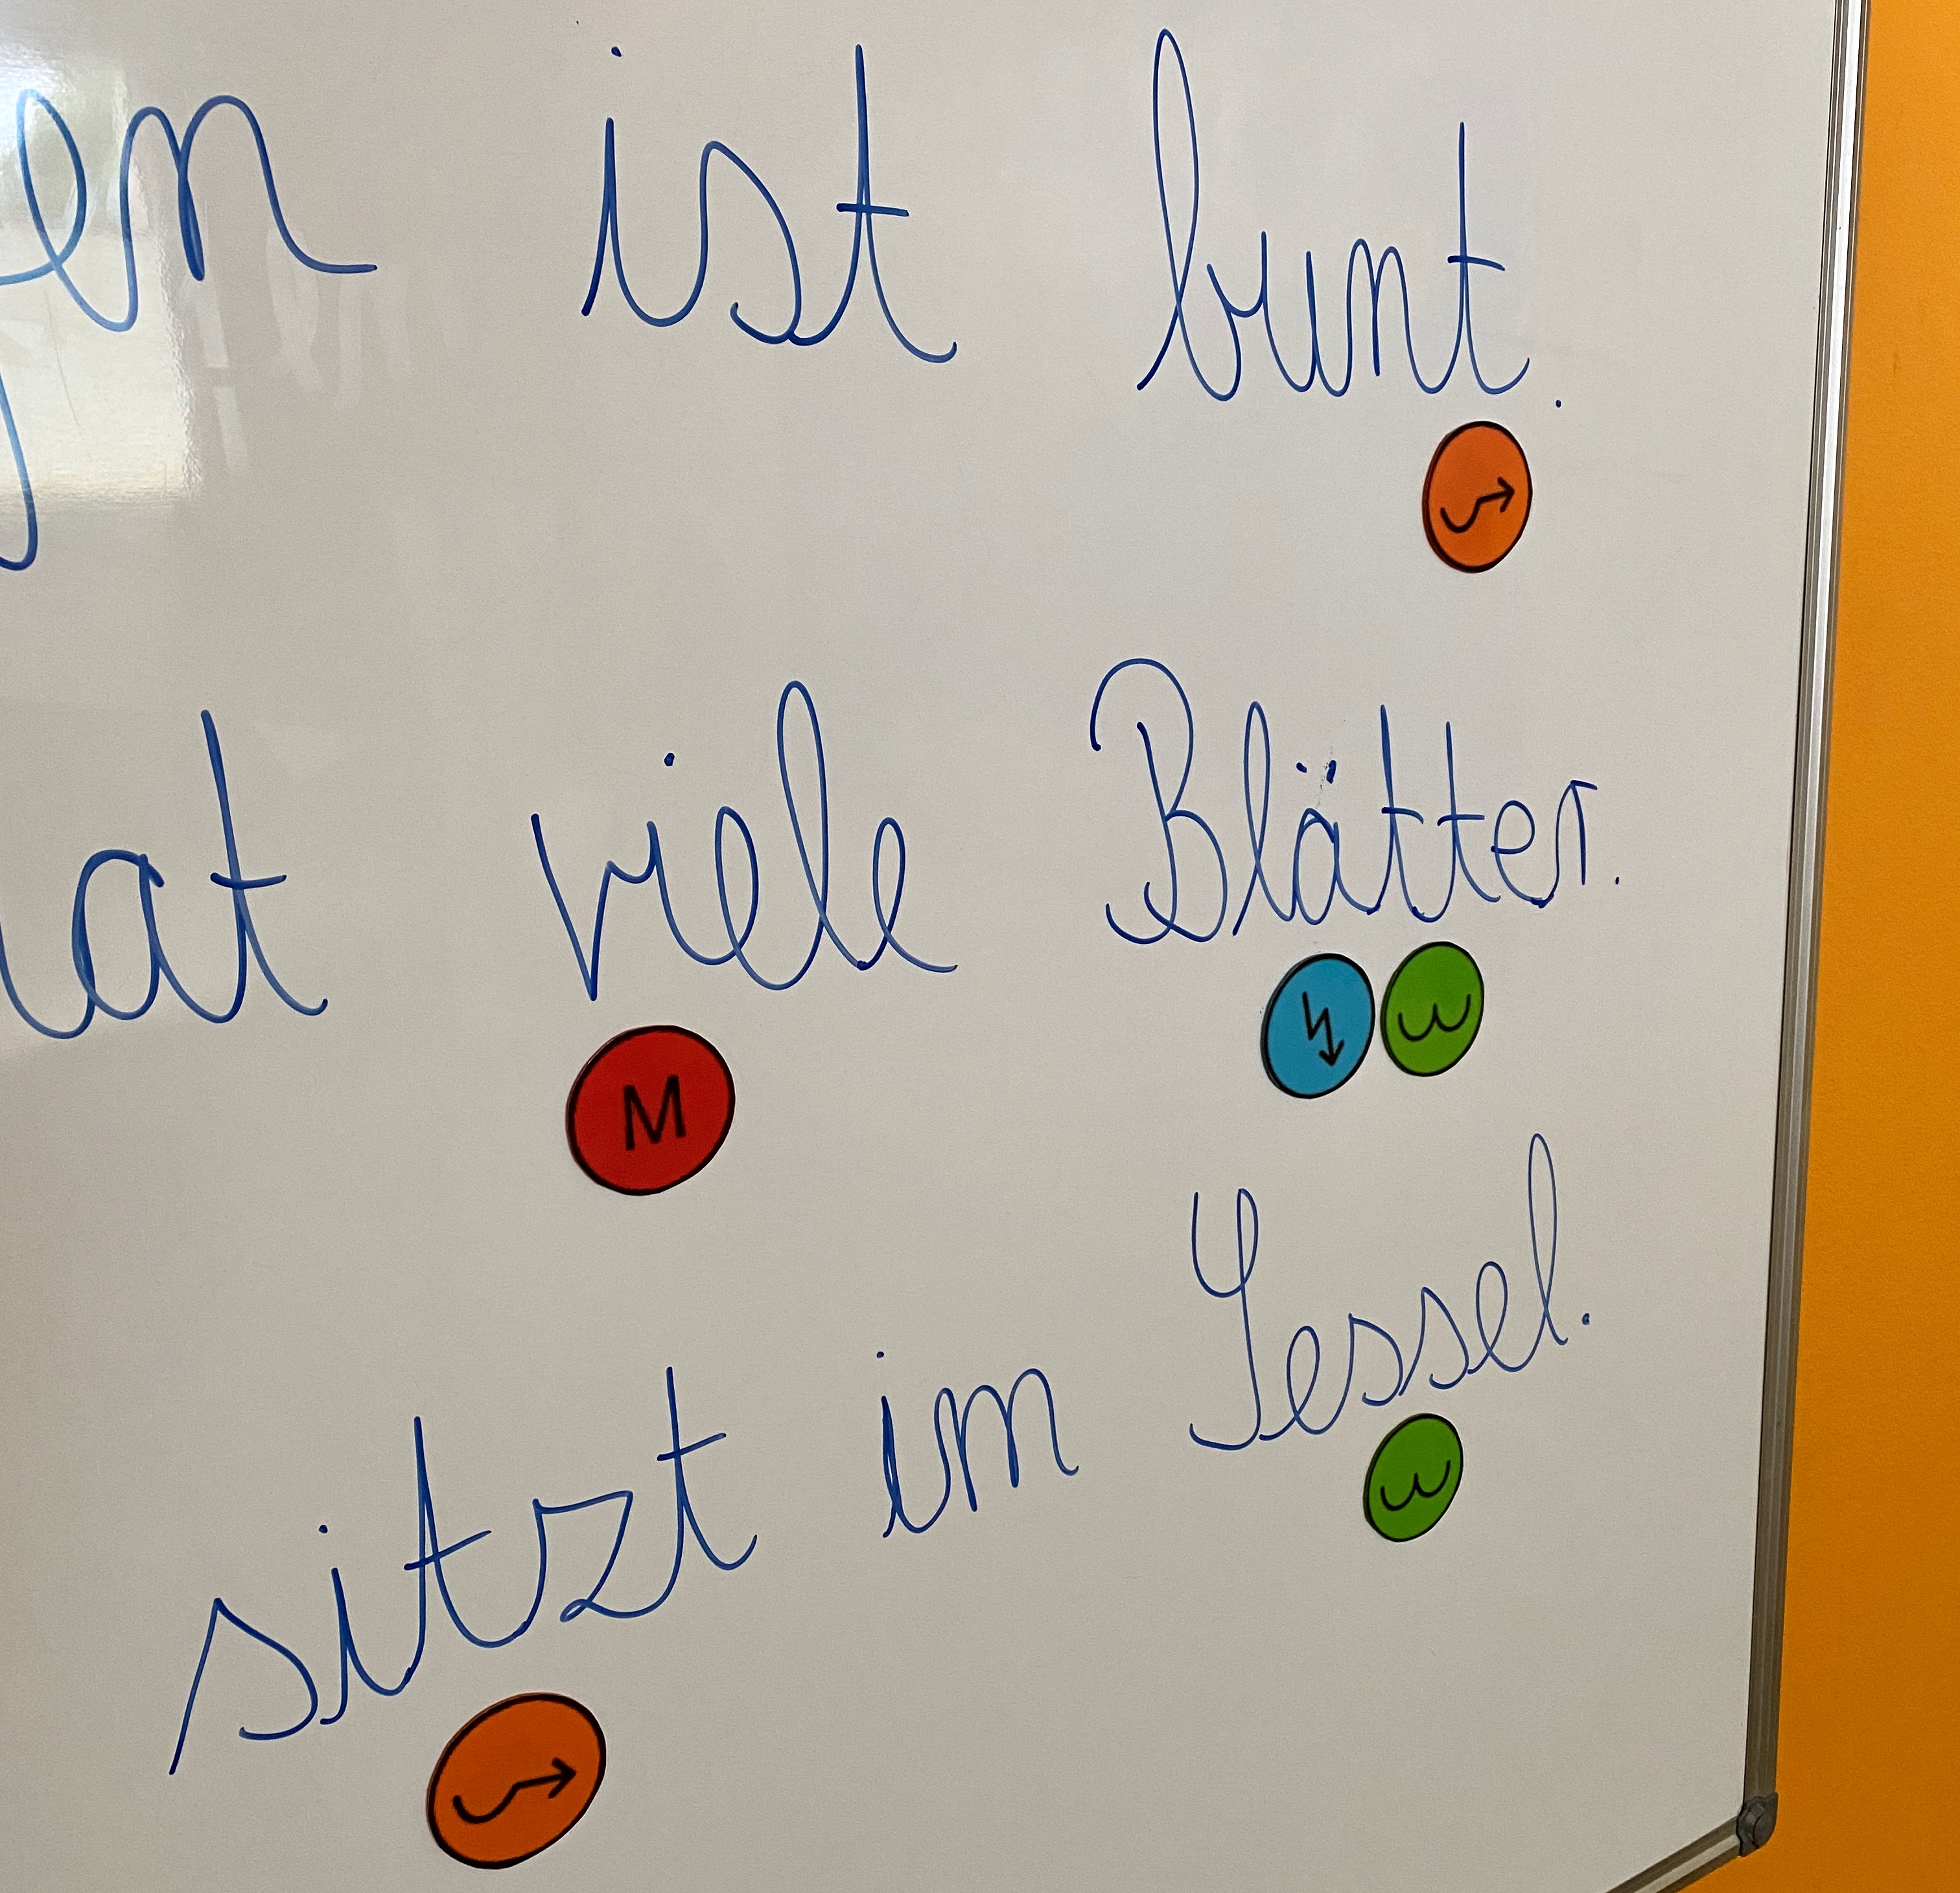 ist bunt.
viele Blätter.
M
sitzt im Sessel.